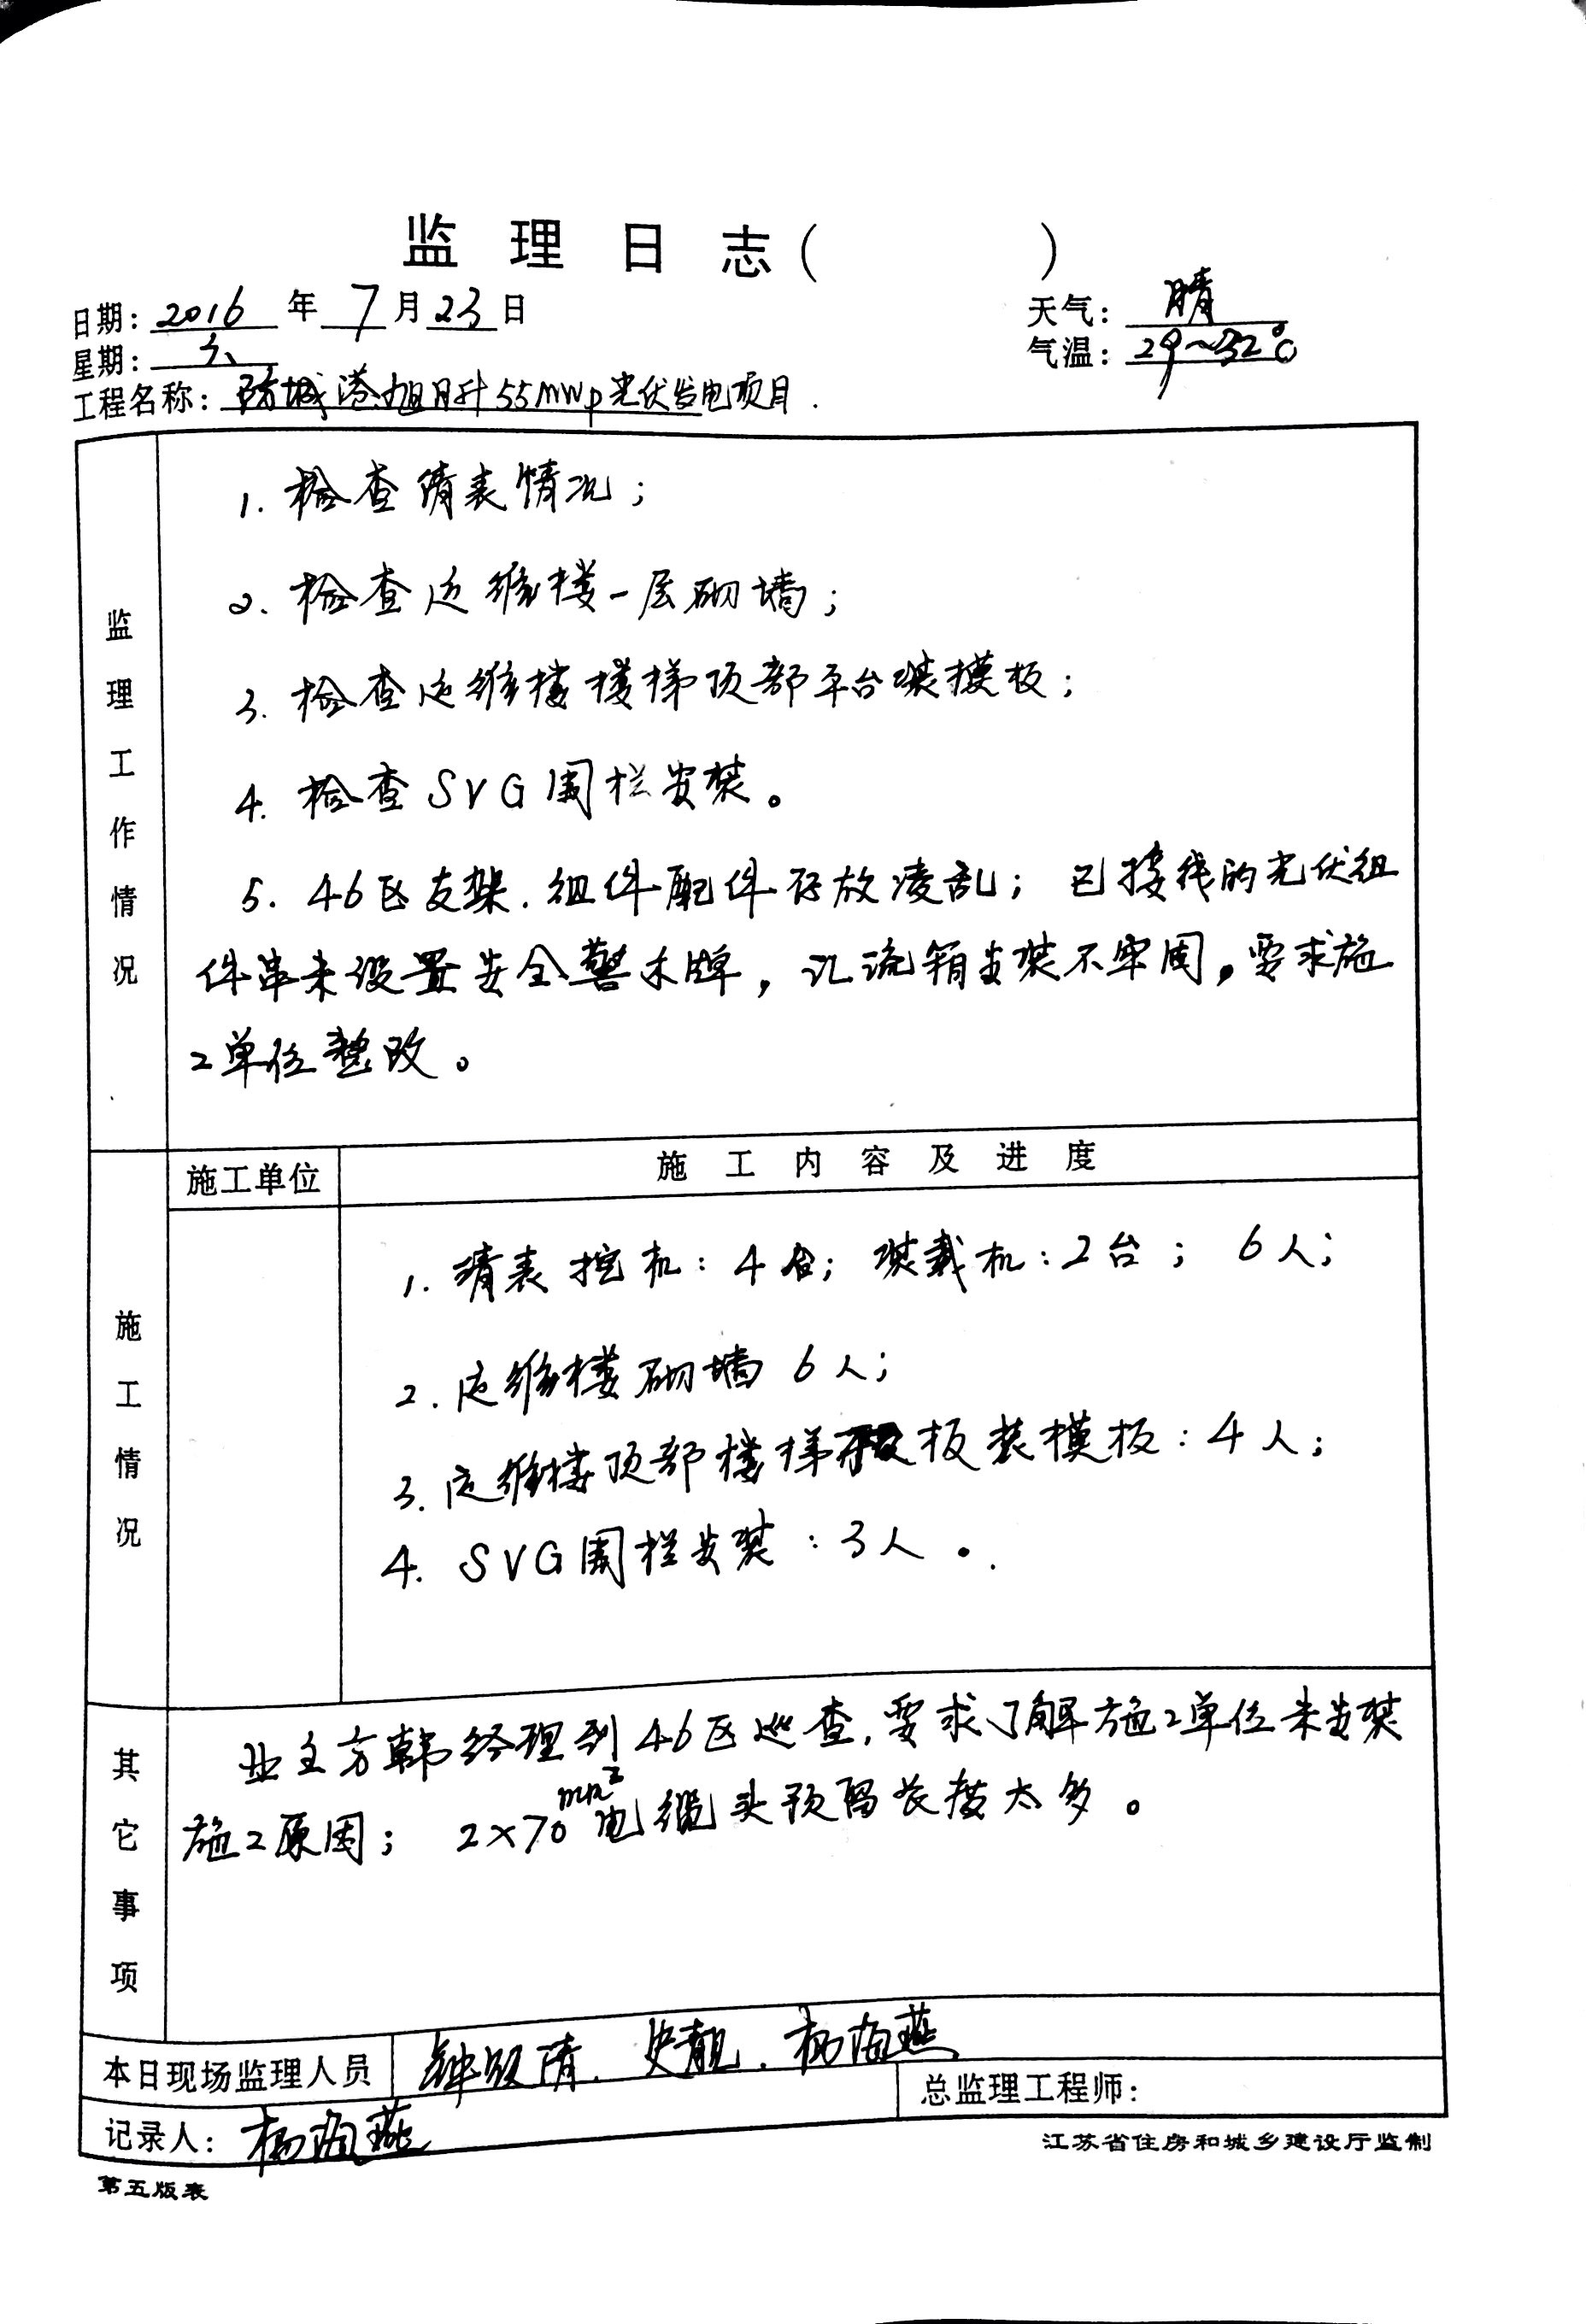 监理日志(　　　)
日期: 2016 年 7 月 23 日
天气: 晴
星期: 六
气温: 29~32℃
工程名称: 防城港旭日升55MWp光伏发电项目.
监理工作情况
1. 检查清表情况;
2. 检查运维楼一层砌墙;
3. 检查运维楼楼梯顶部平台装模板;
4. 检查SVG围栏安装。
5. 46区支架.组件配件存放凌乱; 已接线的光伏组
件串未设置安全警示牌, 汇流箱安装不牢固。要求施
工单位整改。
施工单位
施工内容及进度
施工情况
1. 清表挖机: 4台; 装载机: 2台; 6人;
2. 运维楼砌墙 6人;
3. 运维楼顶部楼梯板装模板: 4人;
4. SVG围栏安装: 3人。
其它事项
业主方韩经理到46区巡查,要求了解施工单位未安装
施工原因; 2×70mm²电缆头预留长度太多。
本日现场监理人员
史靓. 杨海燕
总监理工程师:
记录人: 杨海燕
江苏省住房和城乡建设厅监制
第五版表